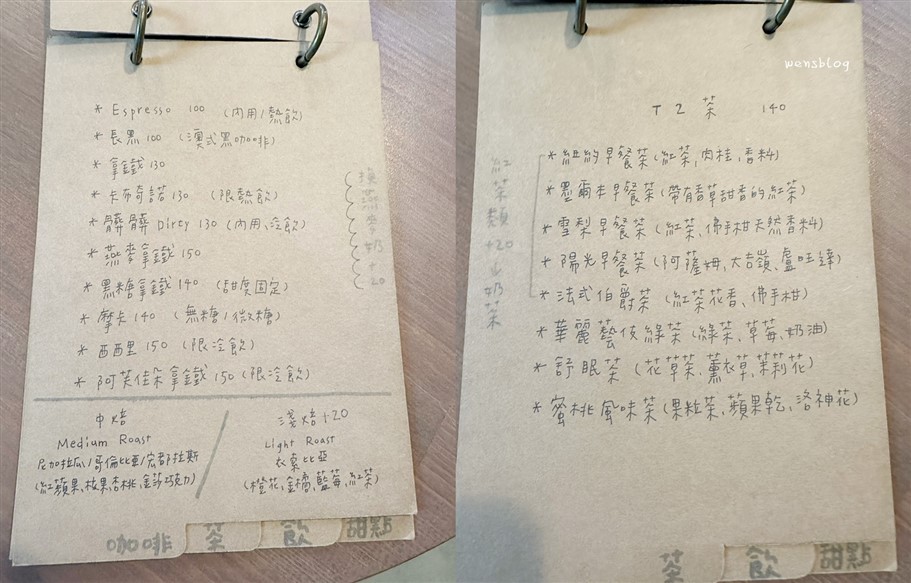 * Espresso 100 (內用/熱飲)
* 長黑 100 (澳式黑咖啡)
* 拿鐵 130
* 卡布奇諾 130 (限熱飲)
* 髒髒 Dirty 130 (內用、冷飲)
* 燕麥拿鐵 150
* 黑糖拿鐵 140 (甜度固定)
* 摩卡 140 (無糖/微糖)
* 西西里 150 (限冷飲)
* 阿芙佳朵拿鐵 150 (限冷飲)
換燕麥奶+20
中焙
Medium Roast
尼加拉瓜/哥倫比亞/宏都拉斯
(紅蘋果、核果杏桃、金莎巧克力)
淺焙+20
Light Roast
衣索比亞
(橙花、金橘、藍莓、紅茶)
咖啡 茶 飲 甜點
wensblog
T2 茶 140
* 紐約早餐茶 (紅茶、肉桂、香料)
* 墨爾本早餐茶 (帶有香草甜香的紅茶)
* 雪梨早餐茶 (紅茶、佛手柑天然香料)
* 陽光早餐茶 (阿薩姆、大吉嶺、盧旺達)
* 法式伯爵茶 (紅茶花香、佛手柑)
* 華麗藝伎綠茶 (綠茶、草莓、奶油)
* 舒眠茶 (花草茶、薰衣草、茉莉花)
* 蜜桃風味茶 (果粒茶、蘋果乾、洛神花)
紅茶類+20→奶茶
茶 飲 甜點